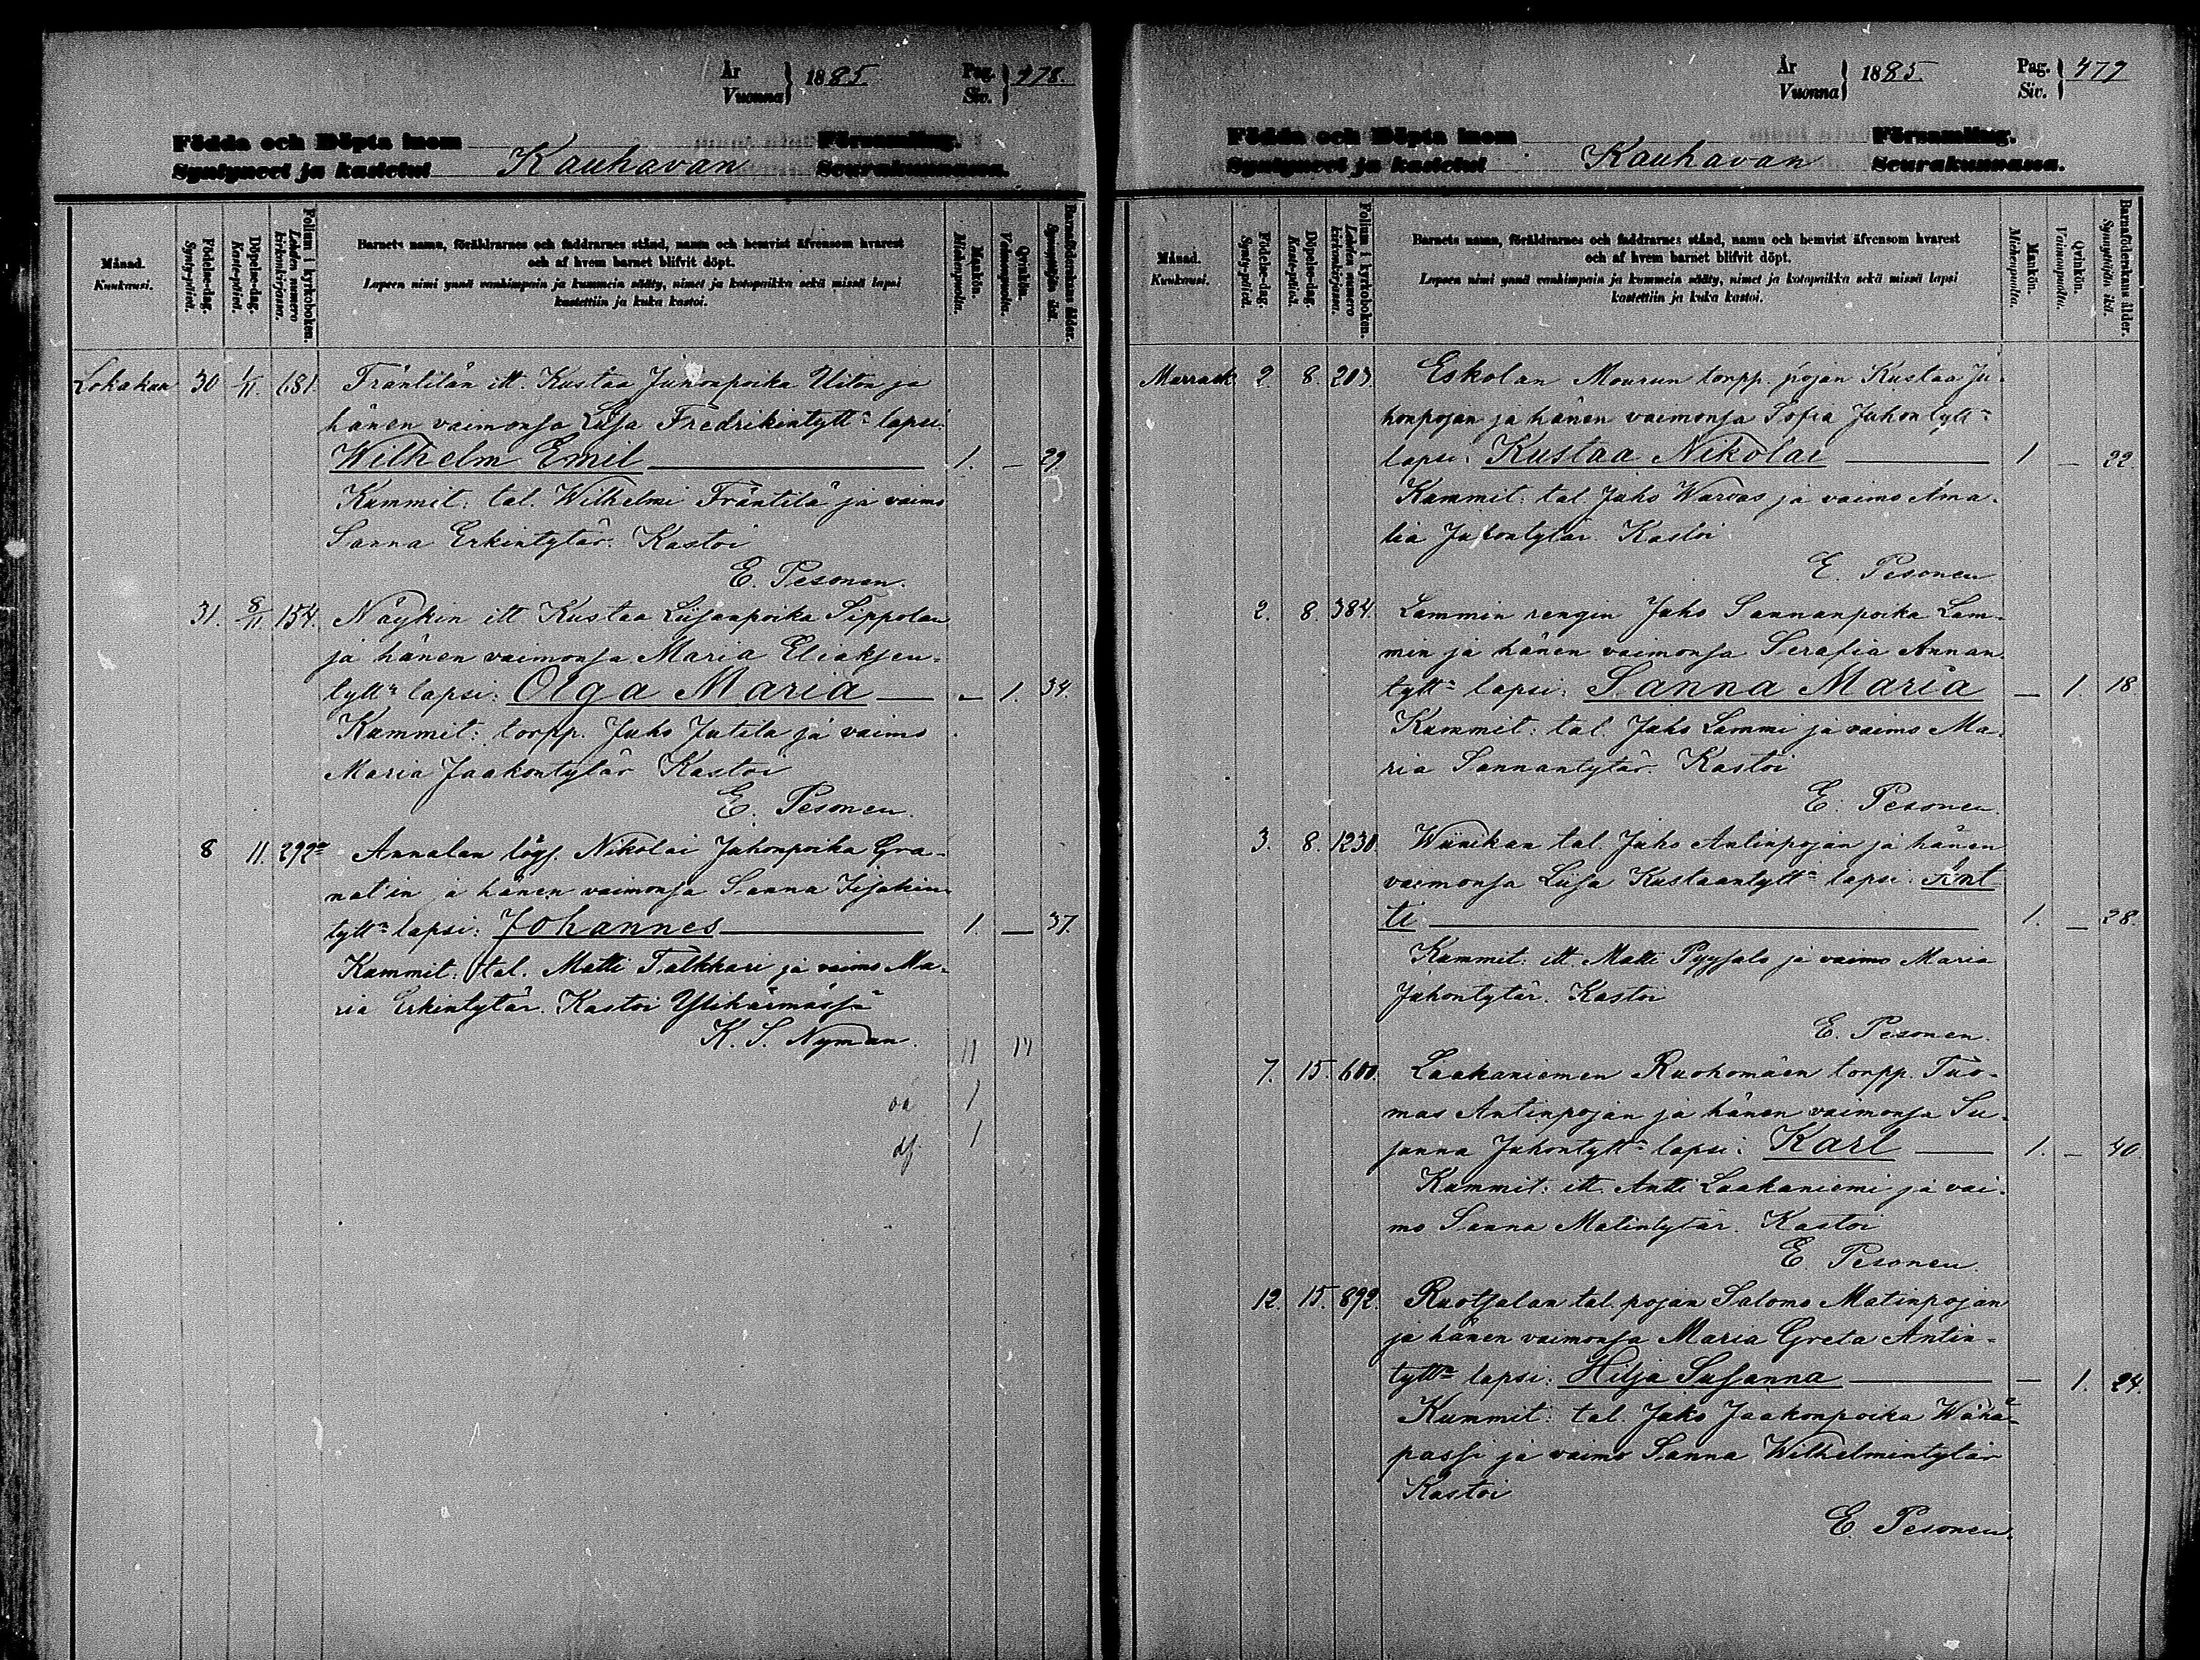 År
Vuonna } 1885. Pag.
Siv. } 478.
Födda och Döpta inom Församling.
Syntyneet ja kastetut Kauhavan Seurakunnassa.
Månad.
Kuukausi.
Födelse-dag.
Synty-päivä.
Döpelse-dag.
Kaste-päivä.
Folium i kyrkoboken.
Lehden numero
kirkonkirjassa.
Barnets namn, föräldrarnes och faddrarnes stånd, namn och hemvist äfvensom hvarest
och af hvem barnet blifvit döpt.
Lapsen nimi ynnä vanhimpain ja kummein sääty, nimet ja kotopaikka sekä missä lapsi
kastettiin ja kuka kastoi.
Mankön.
Miehenpuolta.
Qvinkön.
Vaimonpuolta.
Barnaföderskans ålder.
Synnyttäjän ikä.
Lokakuu 30 1/11. 681. Fräntilän itt. Kustaa Juhonpoika Uiton ja
hänen vaimonsa Liisa Fredrikintytt:n lapsi:
Wilhelm Emil 1. — 29.
Kummit: tal. Wilhelmi Fräntilä ja vaimo
Sanna Erkintytär. Kastoi
E. Pesonen.
31. 8/11 154. Näykin itt Kustaa Liisanpoika Sippolan
ja hänen vaimonsa Maria Eliaksen-
tytt:n lapsi: Olga Maria — 1. 34.
Kummit: torpp. Juho Jutila ja vaimo
Maria Jaakontytär Kastoi
E. Pesonen.
8 11. 292 Annalan löys. Nikolai Juhonpoika Gra-
nat'in ja hänen vaimonsa Sanna Iisakin-
tytt:n lapsi: Johannes 1. — 37.
Kummit: tal. Matti Talkkari ja vaimo Ma-
ria Erkintytär. Kastoi Ylihärmässä
K. S. Nyman.
11 14
oä 1
df 1
År
Vuonna } 1885. Pag.
Siv. } 479
Födda och Döpta inom Församling.
Syntyneet ja kastetut Kauhavan Seurakunnassa.
Månad.
Kuukausi.
Födelse-dag.
Synty-päivä.
Döpelse-dag.
Kaste-päivä.
Folium i kyrkoboken.
Lehden numero
kirkonkirjassa.
Barnets namn, föräldrarnes och faddrarnes stånd, namn och hemvist äfvensom hvarest
och af hvem barnet blifvit döpt.
Lapsen nimi ynnä vanhimpain ja kummein sääty, nimet ja kotopaikka sekä missä lapsi
kastettiin ja kuka kastoi.
Mankön.
Miehenpuolta.
Qvinkön.
Vaimonpuolta.
Barnaföderskans ålder.
Synnyttäjän ikä.
Marrask 2. 8. 203. Eskolan Mourun torpp. pojan Kustaa Ju-
honpojan ja hänen vaimonsa Sofia Juhontytt:n
lapsi: Kustaa Nikolai 1 — 22.
Kummit: tal. Juho Warvas ja vaimo Ama-
lia Juhontytär. Kastoi
E. Pesonen
2. 8. 384. Lammin rengin Juho Sannanpoika Lam-
min ja hänen vaimonsa Serafia Annan-
tytt:n lapsi: Sanna Maria — 1. 18
Kummit: tal. Juho Lammi ja vaimo Ma-
ria Sannantytär. Kastoi
E. Pesonen.
3. 8. 1230. Wiinikan tal. Juho Antinpojan ja hänen
vaimonsa Liisa Kustaantytt:n lapsi: Ant-
ti 1. — 28.
Kummit: itt. Matti Pyysalo ja vaimo Maria
Juhontytär. Kastoi
E. Pesonen.
7. 15. 600. Laakaniemen Ruohomäen torpp. Tuo-
mas Antinpojan ja hänen vaimonsa Su-
sanna Juhontytt:n lapsi: Karl 1. — 40.
Kummit: itt. Antti Laakaniemi ja vai-
mo Sanna Matintytär. Kastoi
E. Pesonen.
12. 15. 892. Ruotsalan tal. pojan Salomo Matinpojan
ja hänen vaimonsa Maria Greta Antin-
tytt:n lapsi: Hilja Susanna — 1. 24.
Kummit: tal. Juho Jaakonpoika Wähä-
passi ja vaimo Sanna Wilhelmintytär
Kastoi
E. Pesonen.